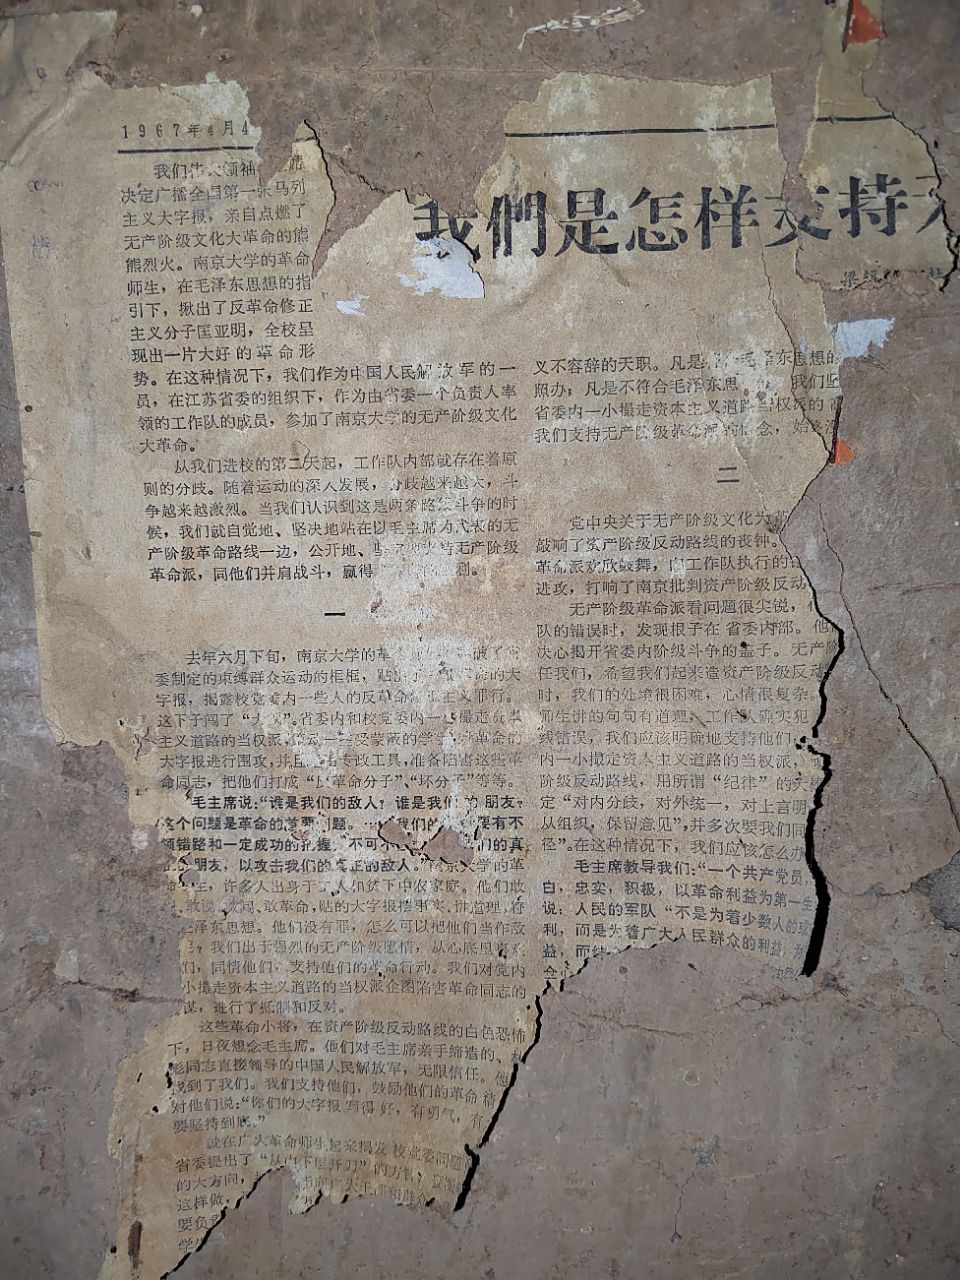 1967年4月4
我們是怎样支持
我们伟大领袖
决定广播全国第一张马列
主义大字报，亲自点燃了
无产阶级文化大革命的熊
熊烈火。南京大学的革命
师生，在毛泽东思想的指
引下，揪出了反革命修正
主义分子匡亚明，全校呈
现出一片大好的革命形
势。在这种情况下，我们作为中国人民解放军的一
员，在江苏省委的组织下，作为由省委一个负责人率
领的工作队的成员，参加了南京大学的无产阶级文化
大革命。
从我们进校的第二天起，工作队内部就存在着原
则的分歧。随着运动的深入发展，分歧越来越大，斗
争越来越激烈。当我们认识到这是两条路线斗争的时
候，我们就自觉地、坚决地站在以毛主席为代表的无
产阶级革命路线一边，公开地、坚 支持无产阶级
革命派，同他们并肩战斗，赢得 利。
一
去年六月下旬，南京大学的革 破了省
委制定的束缚群众运动的框框，贴出了 的大
字报，揭露校党委内一些人的反革命修正主义罪行。
这下子闯了“大祸”。省委内和校党委内一小撮走资本
主义道路的当权派，煽动一些受蒙蔽的学生 革命的
大字报进行围攻，并 专政工具，准备陷害这些革
命同志，把他们打成“反革命分子”、“坏分子”等等。
毛主席说：“谁是我们的敌人？谁是我们的朋友？
这个问题是革命的首要问题。……我们的 要有不
领错路和一定成功的把握，不可不 们的真
朋友，以攻击我们的真正的敌人。”南京大学的革
生，许多人出身于工人和贫下中农家庭。他们敢
敢说、敢闯、敢革命，贴的大字报摆事实、讲道理，符
泽东思想。他们没有罪，怎么可以把他们当作敌
我们出于强烈的无产阶级感情，从心底里喜欢
们，同情他们，支持他们的革命行动。我们对党内
小撮走资本主义道路的当权派企图陷害革命同志的
谋，进行了抵制和反对。
这些革命小将，在资产阶级反动路线的白色恐怖
下，日夜想念毛主席。他们对毛主席亲手缔造的、林
彪同志直接领导的中国人民解放军，无限信任。他
找到了我们。我们支持他们，鼓励他们的革命精
对他们说：“你们的大字报写得好，有勇气，有
要坚持到底。”
就在广大革命师生起来揭发校党委问题
省委提出了“从 下层开刀”的方针，
的大方向，
这样做，
要负
学
义不容辞的天职。凡是 毛泽东思想的
照办；凡是不符合毛泽东思 我们坚
省委内一小撮走资本主义道路当权派的
我们支持无产阶级革命派的信念，始终
二
党中央关于无产阶级文化大革
敲响了资产阶级反动路线的丧钟。
革命派欢欣鼓舞，向工作队执行的
进攻，打响了南京批判资产阶级反动
无产阶级革命派看问题很尖锐，
队的错误时，发现根子在省委内部。他
决心揭开省委内阶级斗争的盖子。无产
任我们，希望我们起来造资产阶级反动
时，我们的处境很困难，心情很复杂。
师生讲的句句有道理，工作队确实犯
线错误，我们应该明确地支持他们；
内一小撮走资本主义道路的当权派，
阶级反动路线，用所谓“纪律”的大
定“对内分歧，对外统一，对上言明
从组织，保留意见”，并多次要我们同
径”。在这种情况下，我们应该怎么办
毛主席教导我们：“一个共产党员，
白，忠实，积极，以革命利益为第一生
说：人民的军队“不是为着少数人的
利，而是为着广大人民群众的利益，
益，而